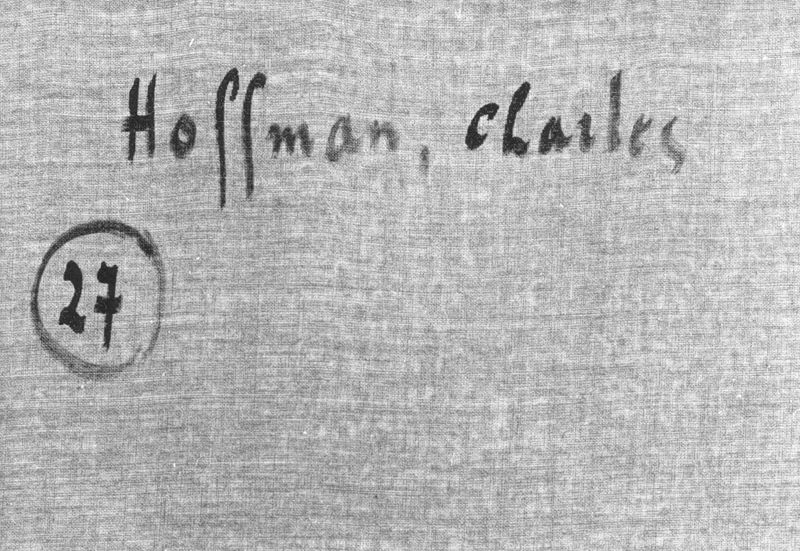 Hoffman, Charles
27